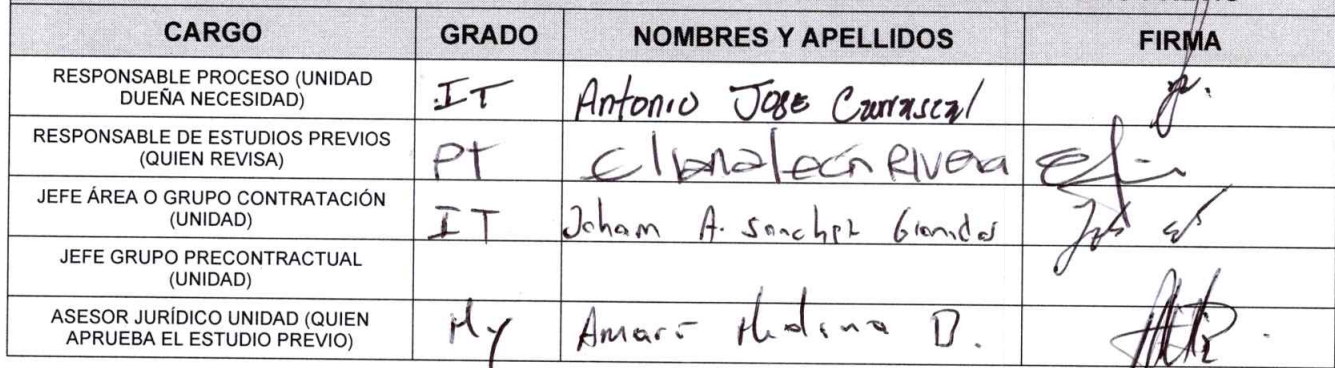 CARGO GRADO NOMBRES Y APELLIDOS FIRMA
RESPONSABLE PROCESO (UNIDAD
DUEÑA NECESIDAD) IT Antonio Jose Carrascal
RESPONSABLE DE ESTUDIOS PREVIOS
(QUIEN REVISA) PT Eliana León Rivera
JEFE ÁREA O GRUPO CONTRATACIÓN
(UNIDAD) IT Joham A. Sanchez Granados
JEFE GRUPO PRECONTRACTUAL
(UNIDAD)
ASESOR JURÍDICO UNIDAD (QUIEN
APRUEBA EL ESTUDIO PREVIO) My Medina D.